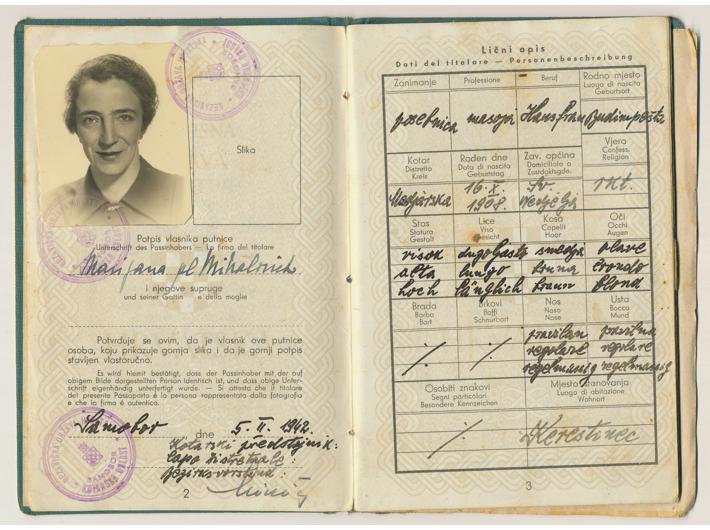 Slika
Potpis vlasnika putnice
Unterschrift des Passinhabers — La firma del titolare
Marijana pl Mihalovich
i njegove supruge
und seiner Gattin e della moglie
Potvrđuje se ovim, da je vlasnik ove putnice
osoba, koju prikazuje gornja slika i da je gornji potpis
stavljen vlastoručno.
Es wird hiemit bestätigt, dass der Passinhaber mit der auf
obigem Bilde dargestellten Person identisch ist, und dass obige Unter-
schrift eigenhändig unterfertigt wurde. — Si attesta che il titolare
del presente Passaporto è la persona rappresentata dalla fotografia
e che la firma è autentica.
Samobor dne 5. II. 1942.
Kotarski predstojnik:
Capo distrettuale:
Bezirksvorstand:
2
Lični opis
Dati del titolare — Personenbeschreibung
Zanimanje Professione Beruf Rodno mjesto
Luogo di nascita
Geburtsort
posebnica Budimpešta
Kotar Rođen dne Zav. općina Vjera
Distretto Data di nascita Domiciliato a Confess.
Kreis Geburtstag Zuständigktsgde. Religion
Madjarska 16. X. Sv. rkt.
1908. Nedjelja
Stas Lice Kosa Oči
Statura Viso Capelli Occhi
Gestalt Gesicht Haar Augen
visok smedja plave
alta lungo bruna biondo
hoch länglich braun blond
Brada Brkovi Nos Usta
Barba Baffi Naso Bocca
Bart Schnurbart Nase Mund
pravilan pravilna
./. ./. regolare regolare
regelmässig regelmässig
Osobiti znakovi Mjesto stanovanja
Segni particolari Luogo di abitazione
Besondere Kennzeichen Wohnort
./. Kerestinec
3